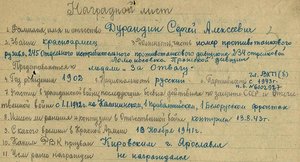 Наградной лист
1. Фамилия, имя и отчество Дурандин Сергей Алексеевич
2. Звание красноармеец 3. Должность, часть номер противотанкового
ружья, 245 Отдельного истребительного противотанкового дивизиона 234 стрелковой
Ломоносовско Пражской дивизии
Представляется к
медали "За Отвагу"
4. Год рождения 1902 5. Национальность русский 6. Партийность чл. ВКП(б)
с 1943 г.
7. Участие в гражданской войне, последующих боевых действиях по защите СССР и Отечественной
войне с 1.1942 г. на Калининском, 1 Прибалтийском, 1 Белорусском фронтах
8. Имеет ли ранения и контузии в Отечественной войне контужен 13.8.43 г.
9. С какого времени в Красной Армии 18 Ноября 1941 г.
10. Каким РВК призван Кировским г. Ярославля
11. Чем ранее награжден не награждался